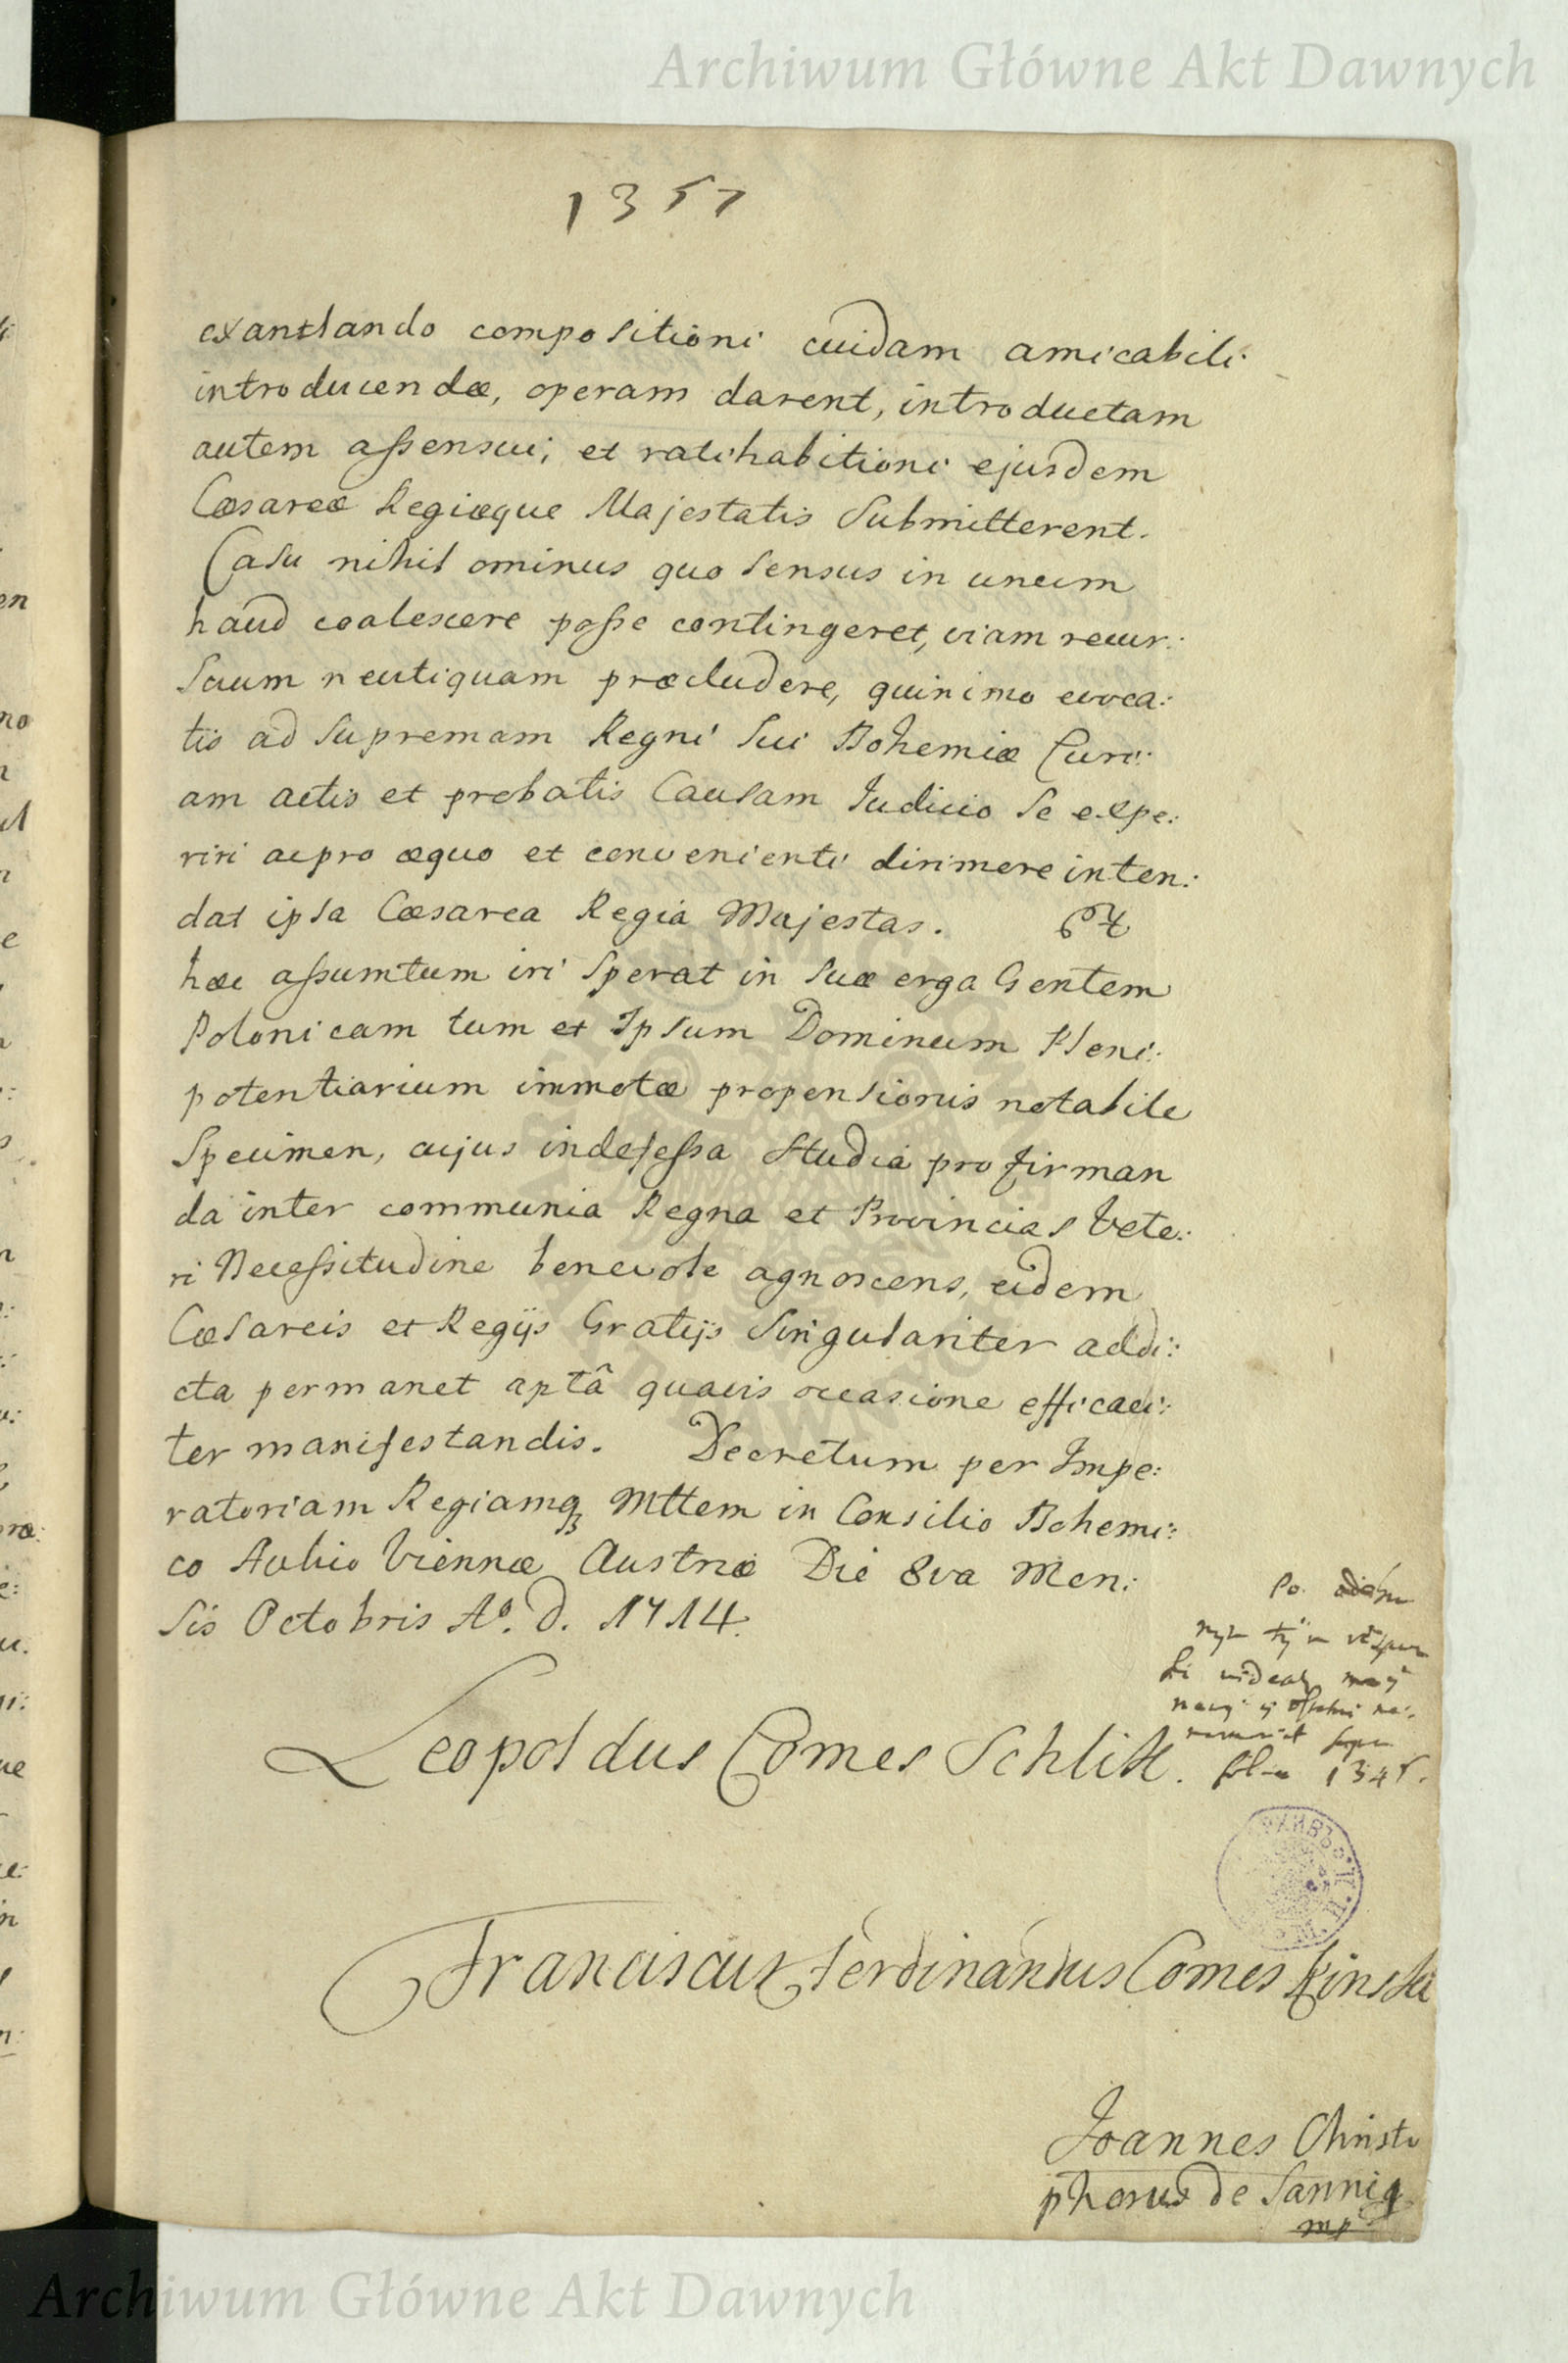 Archiwum Główne Akt Dawnych
1357
exantlando compositioni cuidam amicabili
introducendæ, operam darent, introductam
autem assensui, et ratihabitioni ejusdem
Cæsareæ Regiæque Majestatis Submitterent.
Casu nihil ominus quo sensus in unum
haud coalescere posse contingeret, viam recur:
suum neutiquam præcludere, quinimo evoca:
tis ad Supremam Regni Sui Bohemiæ Curi:
am actis et probatis Causam Iudicio Se expe:
riri ac pro æquo et convenienti dirimere inten:
dat ipsa Cæsarea Regia Majestas. Et
hæc assumtum iri Sperat in suæ erga Gentem
Polonicam tum et Ipsum Dominum Pleni:
potentiarium immotæ propensionis notabile
Specimen, cujus indefessa Studia pro firman
da inter communia Regna et Provincias Vete:
ri Necessitudine benevole agnoscens, eidem
Cæsareis et Regijs Gratijs Singulariter addi:
cta permanet aptâ quavis occasione efficaci:
ter manifestandis. Decretum per Impe:
ratoriam Regiamq3 Mttem in Consilio Bohemi:
co Aulico Viennæ Austriæ Die 8va Men:
sis Octobris Aº. D. 1714.
Po.
Leopoldus Comes Schlik.
1345.
Franciscus Ferdinandus Comes Kinski
Joannes Christo
phorus de Jannig
mp
Archiwum Główne Akt Dawnych